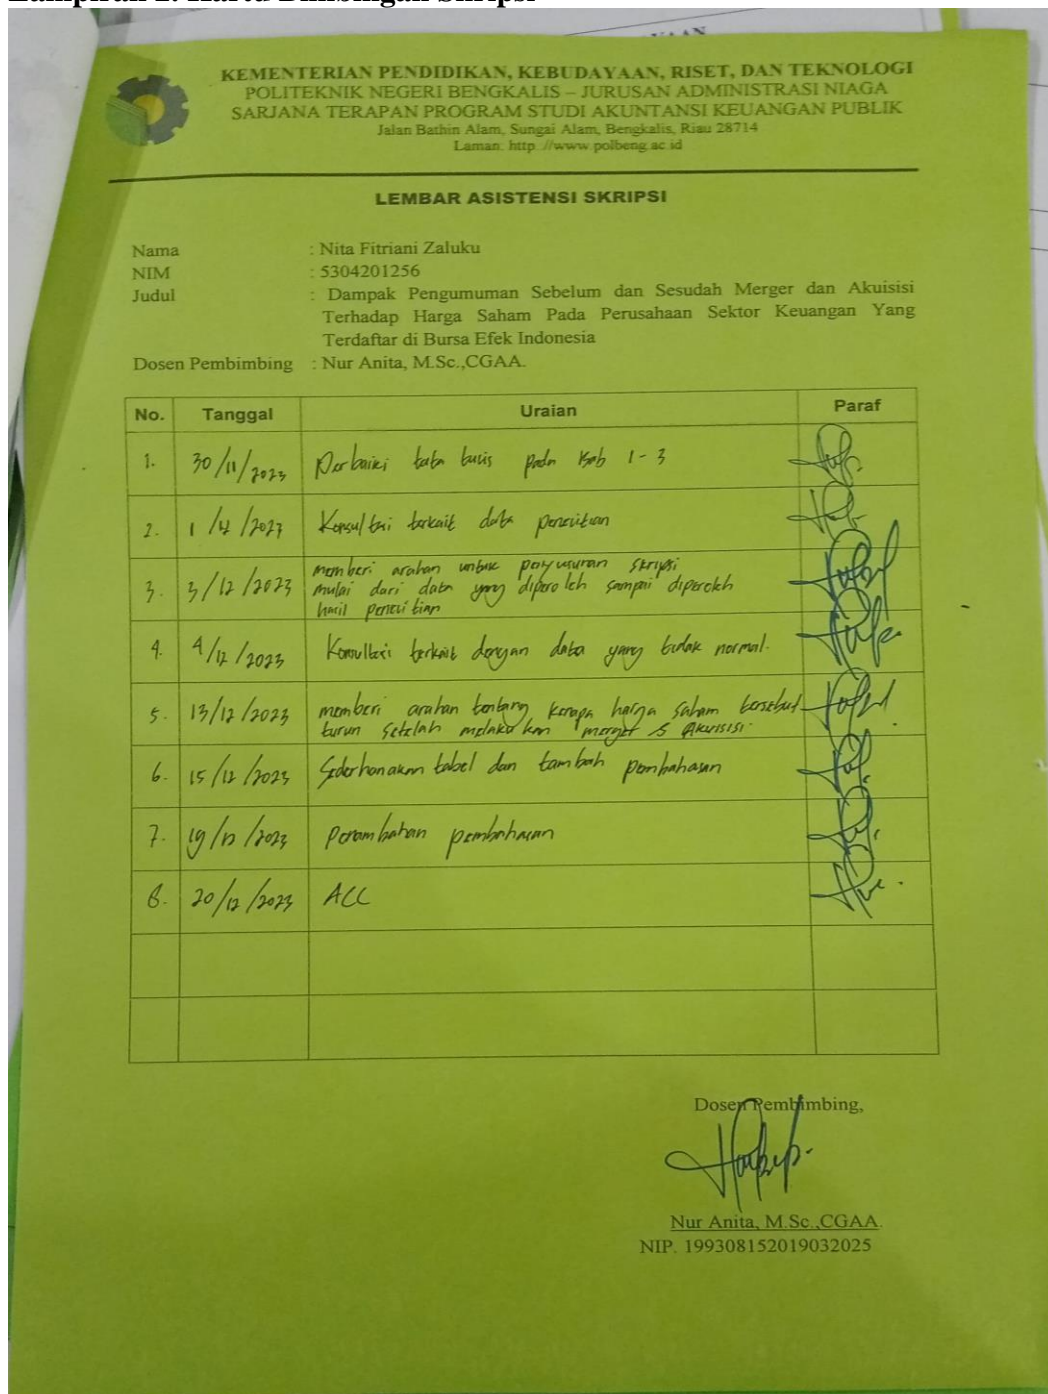 Lampiran 2. Kartu Bimbingan Skripsi
KEMENTERIAN PENDIDIKAN, KEBUDAYAAN, RISET, DAN TEKNOLOGI
POLITEKNIK NEGERI BENGKALIS – JURUSAN ADMINISTRASI NIAGA
SARJANA TERAPAN PROGRAM STUDI AKUNTANSI KEUANGAN PUBLIK
Jalan Bathin Alam, Sungai Alam, Bengkalis, Riau 28714
Laman: http://www.polbeng.ac.id
LEMBAR ASISTENSI SKRIPSI
Nama : Nita Fitriani Zaluku
NIM : 5304201256
Judul : Dampak Pengumuman Sebelum dan Sesudah Merger dan Akuisisi
Terhadap Harga Saham Pada Perusahaan Sektor Keuangan Yang
Terdaftar di Bursa Efek Indonesia
Dosen Pembimbing : Nur Anita, M.Sc.,CGAA.
No. Tanggal Uraian Paraf
1. 30/11/2023 Perbaiki tata tulis pada Bab 1-3
2. Konsultasi terkait data penelitian
3. 3/12/2023 memberi arahan untuk penyusunan skripsi
mulai dari data yang diperoleh sampai diperoleh
hasil penelitian
4. 4/12/2023 Konsultasi terkait dengan data yang tidak normal.
5. 13/12/2023 memberi arahan tentang kenapa harga saham tersebut
turun setelah melakukan merger & Akuisisi.
6. 15/12/2023 Sederhanakan tabel dan tambah pembahasan
7. 19/12/2023 Penambahan pembahasan
8. 20/12/2023 ACC
Dosen Pembimbing,
Nur Anita, M.Sc.,CGAA.
NIP. 199308152019032025